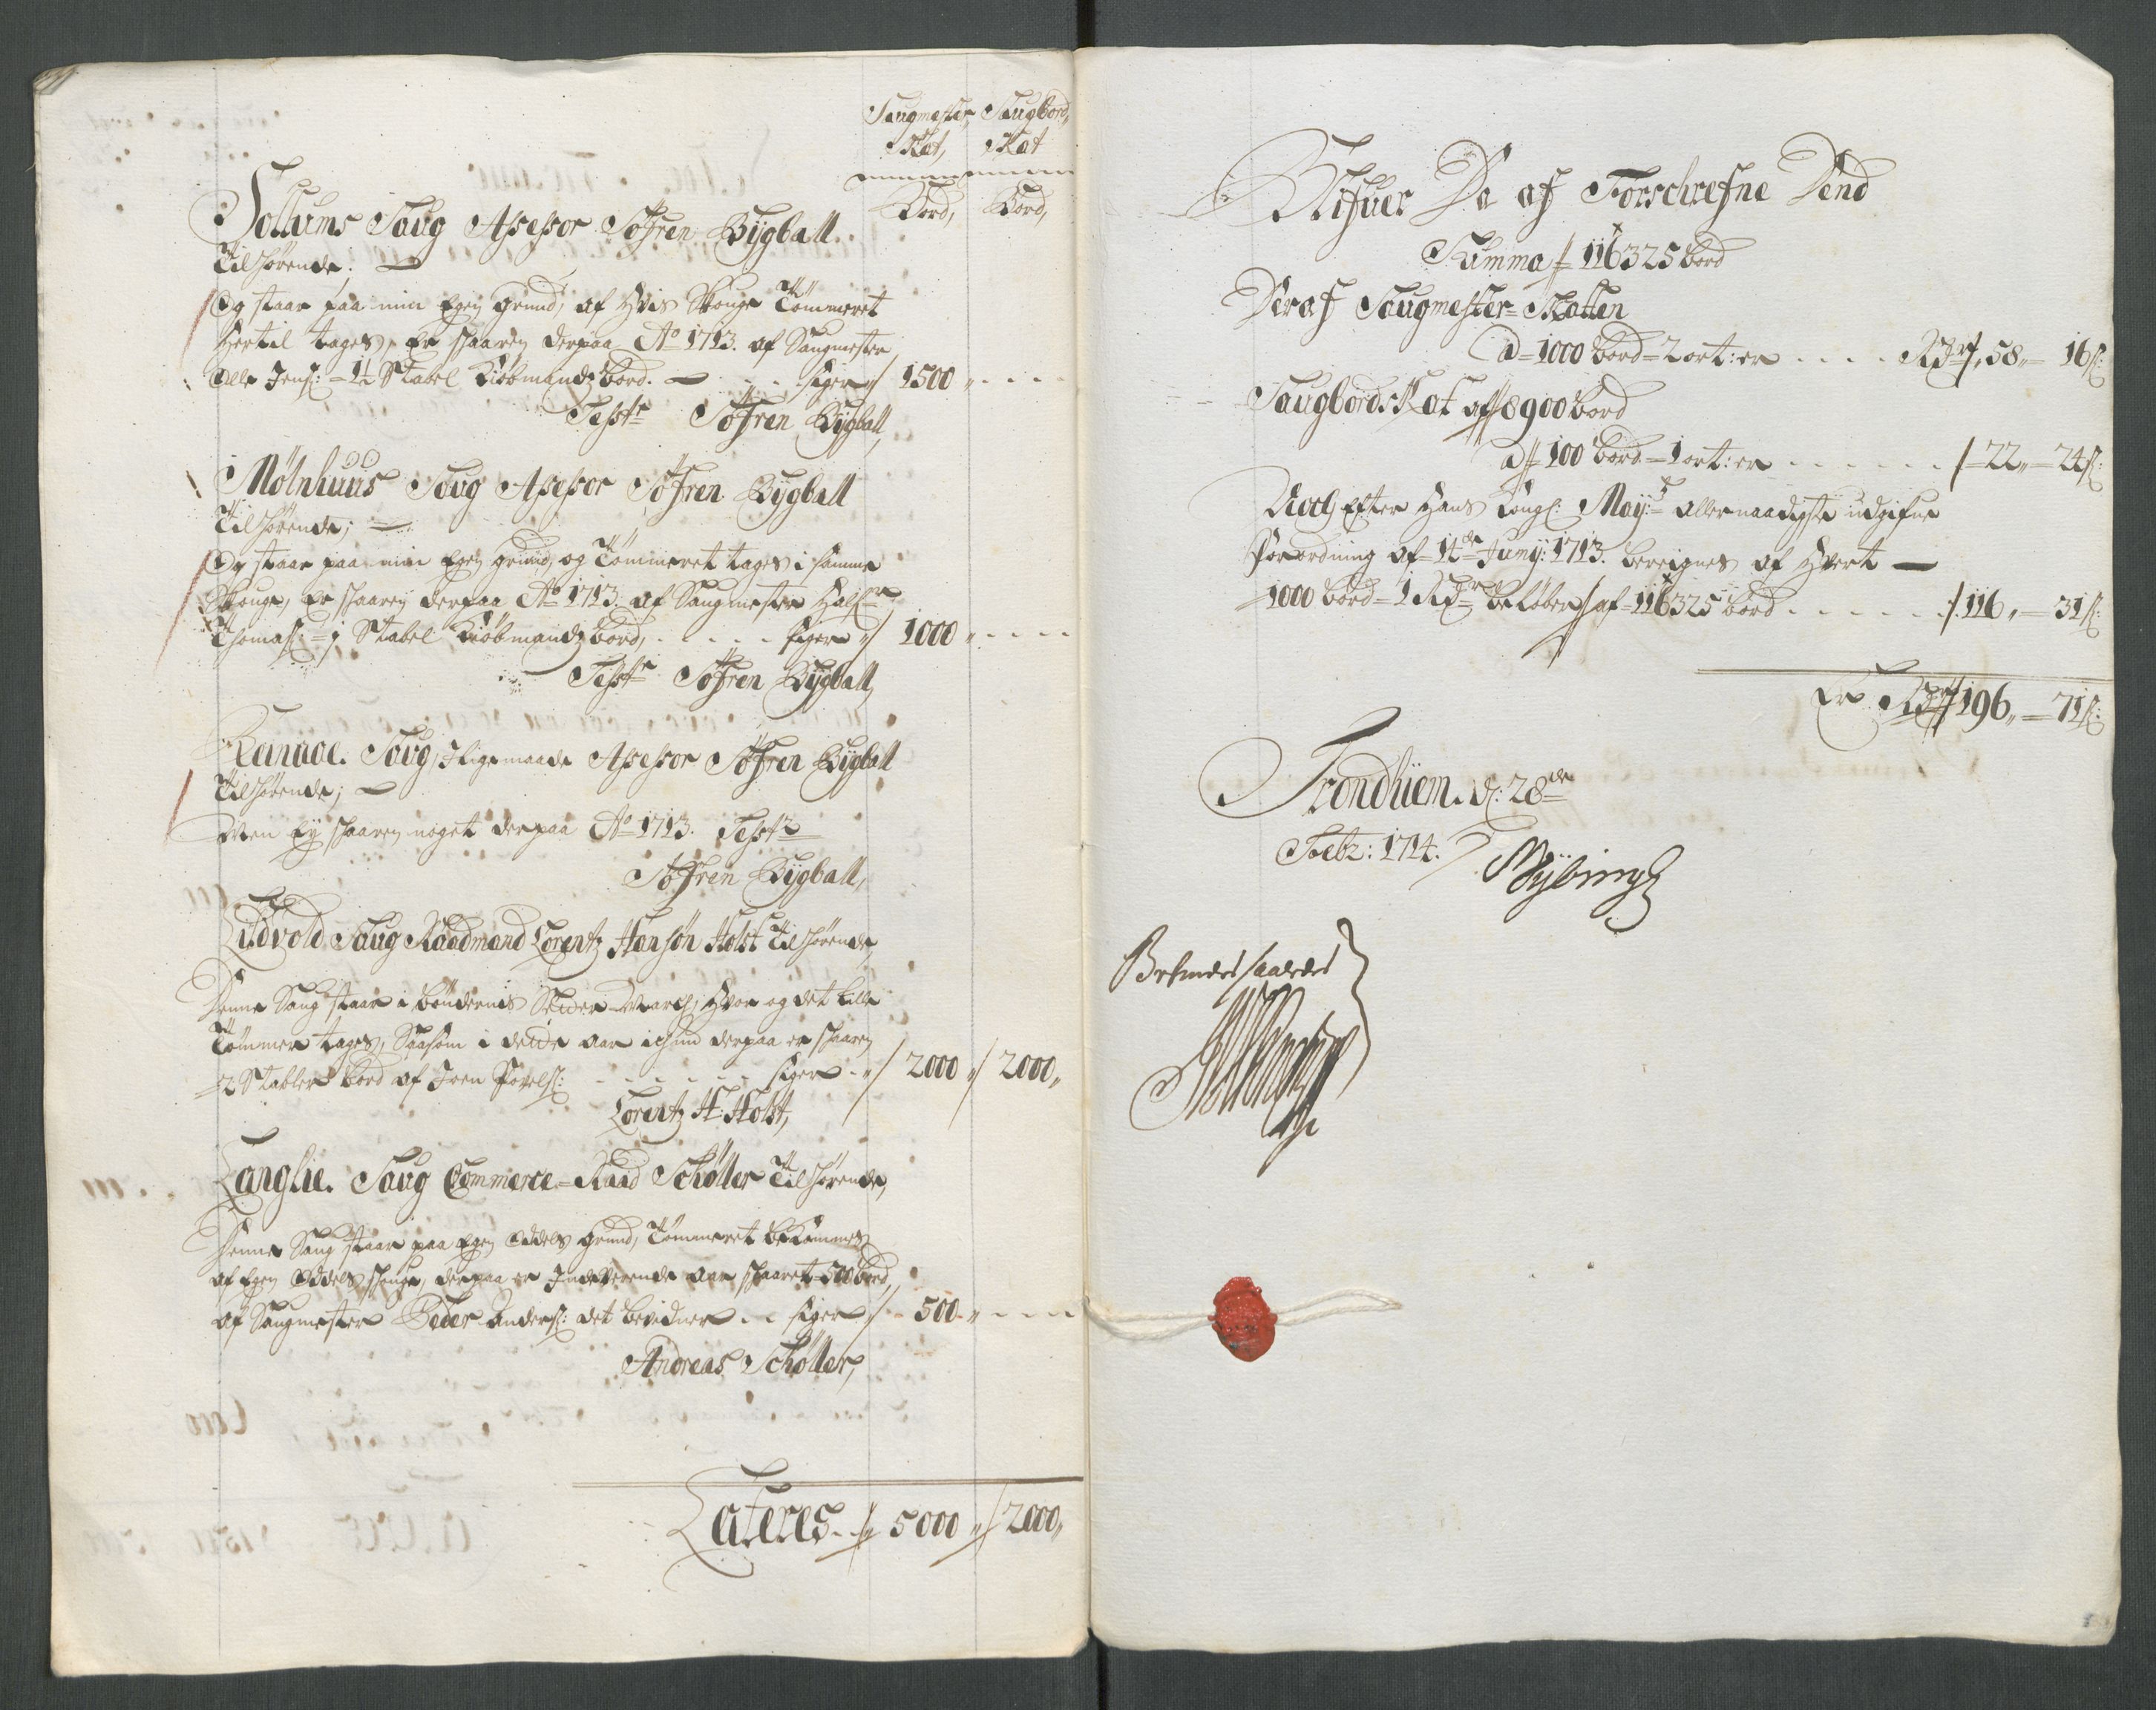 Saugmester Saugbord,
Skat, Skat
Bord, Bord,
Sollums Saug Assessor Søfren Bygball
Tilhørende;
Og staar paa min Egen grund, af Hvis Skouge Tømmeret
Hertil tages, Er skaaren derpaa Ao 1713. af Saugmester
Olle Jens: 1½ Stabel Kiøbmandz bord. siger 1500
Testr Søfren Bygball,
Mølnhuus Saug Assessor Søfren Bygball
Tilhørende;
Og staar paa min Egen grund, og Tømmeret tages i samme
Skouge, Er skaaren derpaa Ao 1713. af Saugmester
Thomas: = 1 Stabel Kiøbmandz bord, siger 1000
Testr Søfren Bygball,
Saug, Ligemaade Assessor Søfren Bygball
Tilhørende;
Men Ey skaaren noget derpaa Ao 1713. Testr
Søfren Bygball,
Lidvold Saug Raadmand Lorentz Hansøn Holst Tilhørende,
Denne Saug staar i bøndernis March, Hvor og det lille
Tømmer tages, Saasom i dette aar ichun derpaa er skaaren
2 Stabler bord af Joen Povels: siger 2000 2000,
Lorentz H: Holst,
Langlie. Saug Commerce-Raad Schøller Tilhørende,
Denne Saug staar paa Egen Oddels grund, Tømmeret bekommes
af Egen Oddels skouge, derpaa er Indeverende aar skaaret 500 bord,
af Saugmester Peder Anders: det bevidner siger 500
Andreas Schøller,
Lateres. 5000 2000,
Blifuer Da af Forschrefne Dend
Summa 116325 bord
Deraf Saugmester-Skatten
a 1000 bord 2 ort: er Rdr 58 16 s:
Saugbord Skat af 8900 bord
a 100 bord 1 ort: er 22 24 s:
Noch Efter Hans Kongl: May:ts allernaadigste udgifne
Forordning af 14de Junij: 1713. bereignes af Hvert
1000 bord 1 Rdr beløber af 116325 bord 116 31 s:
Er Rdr 196 71 s:
Trondhiem. d: 28de
Febr: 1714.